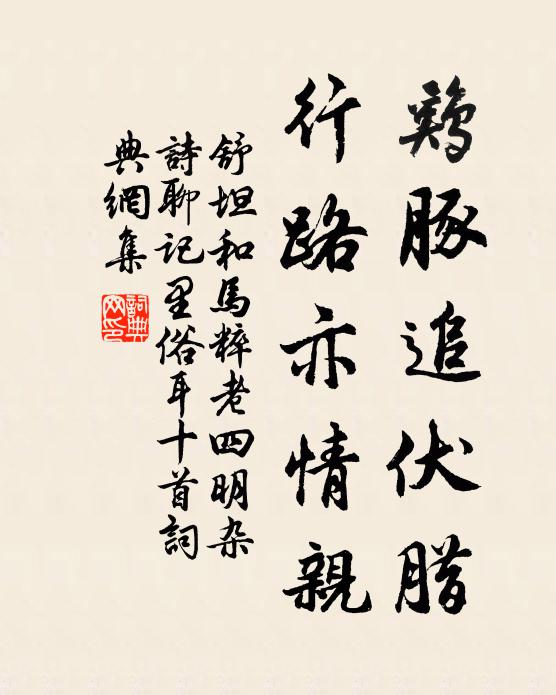 鷄豚追伏腊
行路亦情親
舒坦和馬粹老四明杂
詩聊記里俗耳十首詞
典網集
詞典
网印